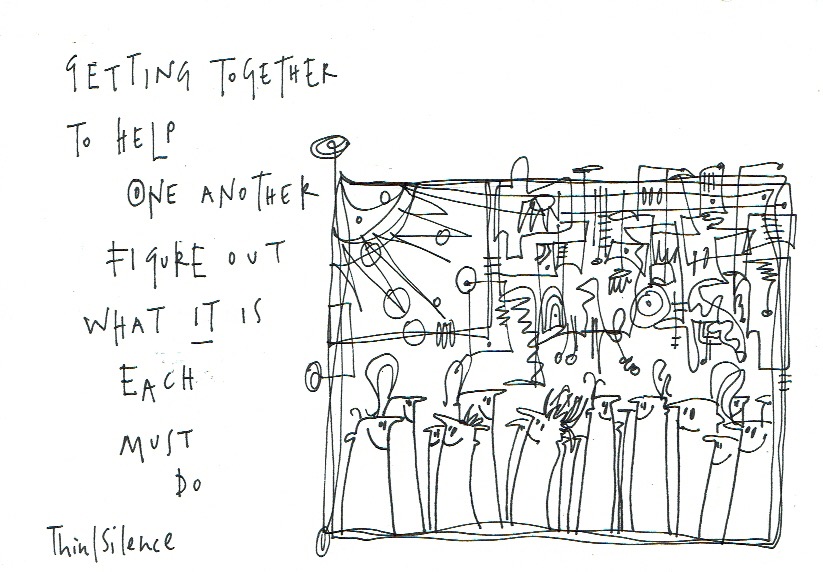 GETTING TOGETHER
TO HELP
ONE ANOTHER
FIGURE OUT
WHAT IT IS
EACH
MUST
DO
Thin/Silence